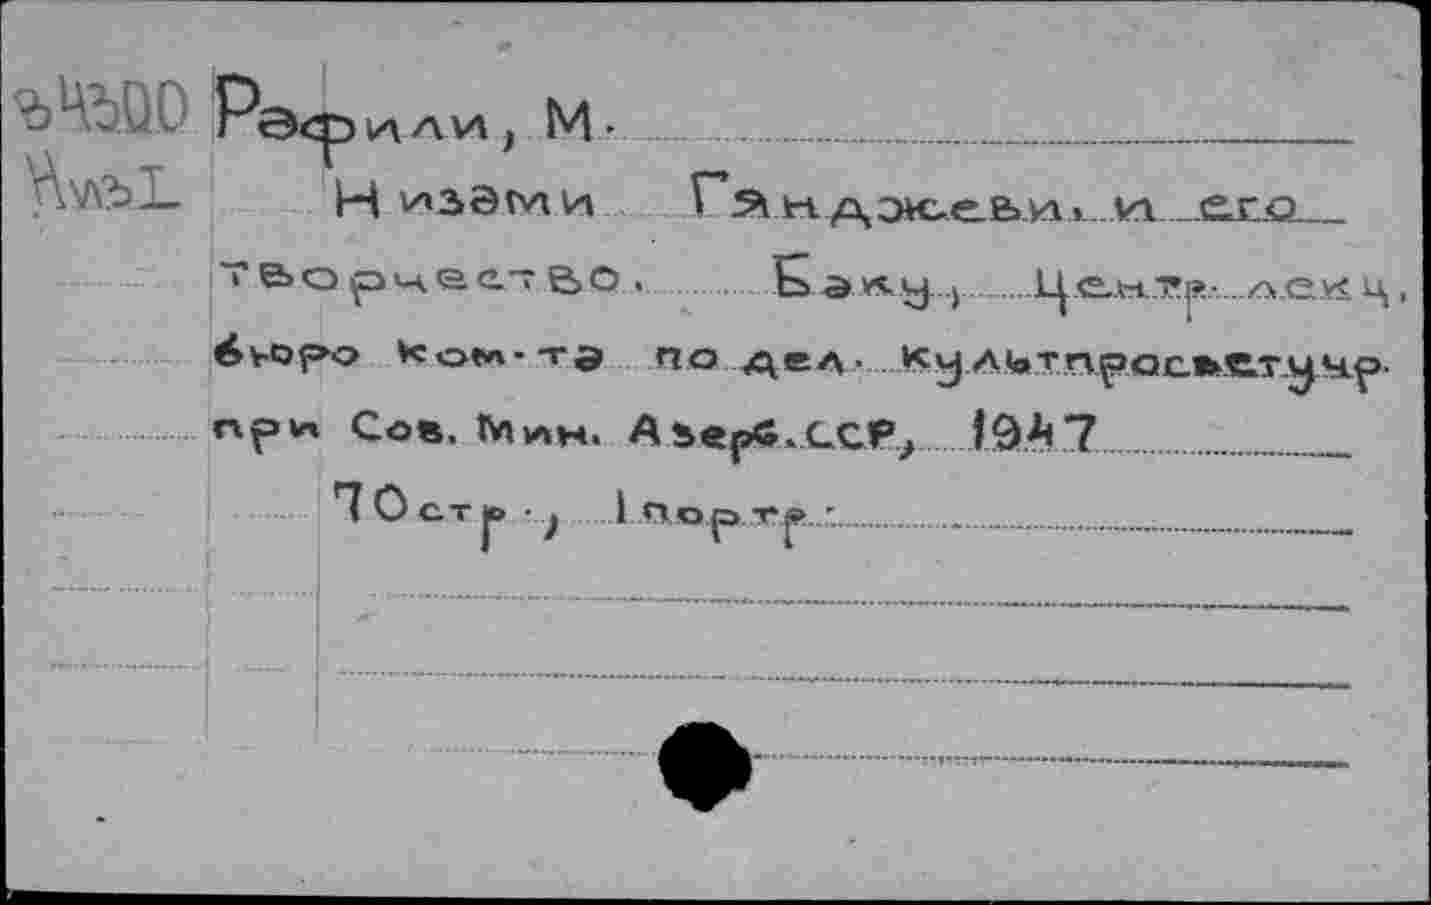 Рәфили, М.
Низәми Гянджеви, и его
творчество. Баку, Центр. лекц.
бюро ком-та по дел. культпросветучр.
при Сов. Мин. Азерб.ССР, 1947
70стр., 1 портр.